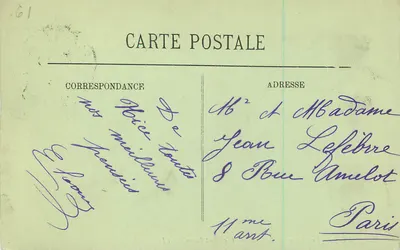 61
CARTE POSTALE
CORRESPONDANCE
De toutes
Nice
nos meilleures
pensées
ADRESSE
Mr et Madame
Jean Lefébvre
8 Rue Amelot
11me arrt.
Paris